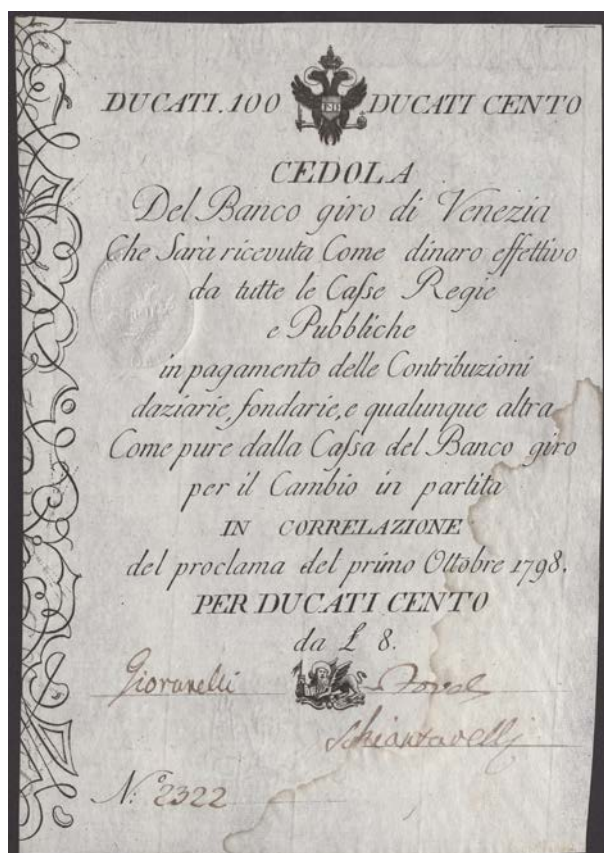 DUCATI.100 DUCATI CENTO
CEDOLA
Del Banco giro di Venezia
Che Sarà ricevuta Come dinaro effettivo
da tutte le Caſse Regie
e Pubbliche
in pagamento delle Contribuzioni
daziarie, fondarie, e qualunque altra
Come pure dalla Caſsa del Banco giro
per il Cambio in partita
IN CORRELAZIONE
del proclama del primo Ottobre 1798.
PER DUCATI CENTO
da £ 8.
Giovanelli
Schiantarelli
N.º 2322